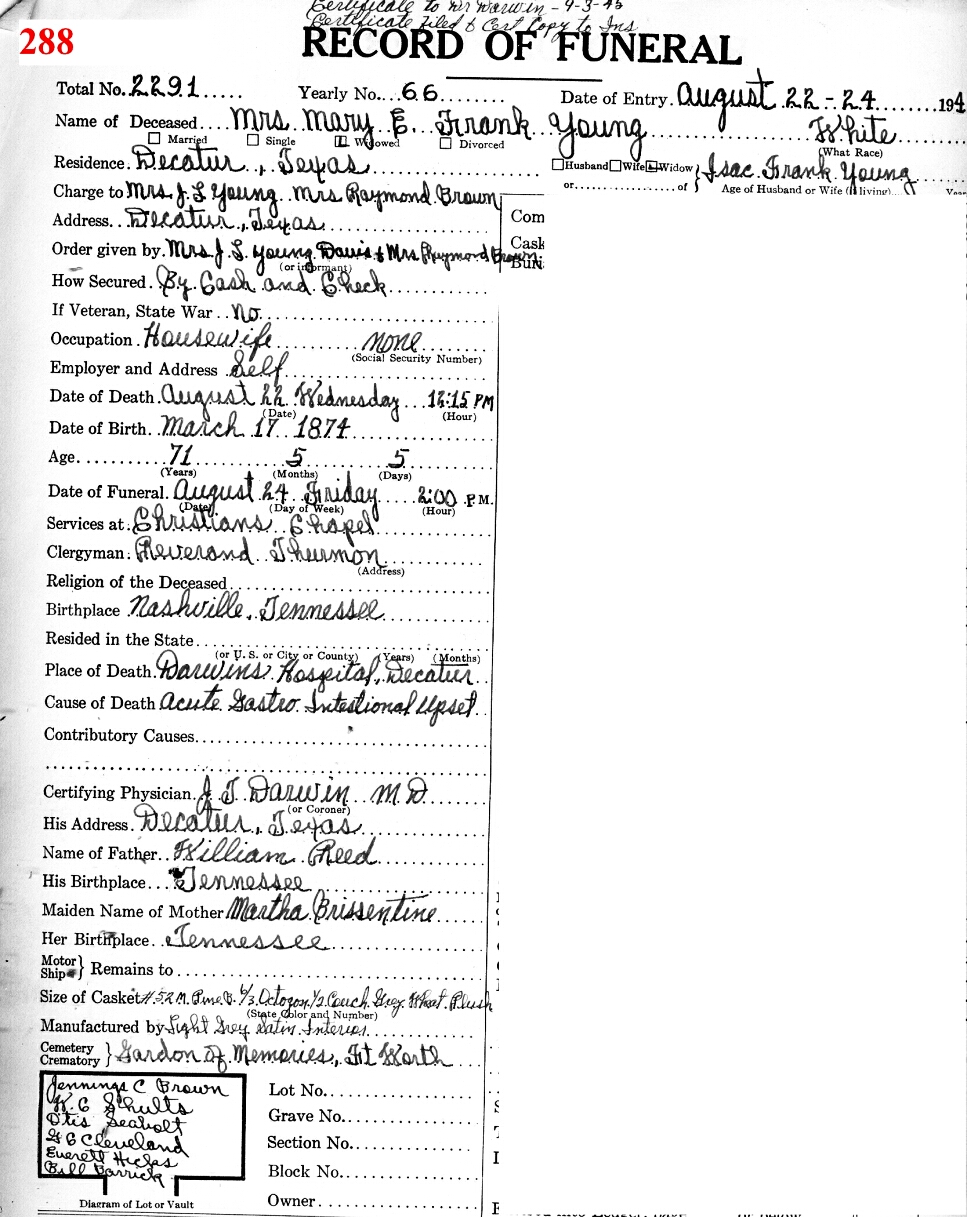 Certificate to Mr Darwin - 9-3-45
288
Certificate Filed & Cert Copy to Ins
RECORD OF FUNERAL
Total No. 2291 Yearly No. 66 Date of Entry. August 22-24 194
Name of Deceased Mrs. Mary E. Frank Young White
Married Single Widowed Divorced (What Race)
Residence. Decatur, Texas Husband Wife Widow } Isac Frank Young
or of Age of Husband or Wife (if living)
Charge to Mrs. J. L Young Mrs Raymond Brown
Address. Decatur, Texas Com
Order given by. Mrs. J. L. Young Davis & Mrs Raymond Brown Cask
(or informant) Buri
How Secured. By Cash and Check
If Veteran, State War No
Occupation. Housewife none
(Social Security Number)
Employer and Address Self
Date of Death. August 22 Wednesday 12:15 PM
(Date) (Hour)
Date of Birth. March 17 1874
Age 71 5 5
(Years) (Months) (Days)
Date of Funeral. August 24 Friday 2:00 P.M.
(Date) (Day of Week) (Hour)
Services at: Christians Chapel
Clergyman: Reverand Thurmon
(Address)
Religion of the Deceased
Birthplace Nashville, Tennessee
Resided in the State
(or U. S. or City or County) (Years) (Months)
Place of Death. Darwins Hospital, Decatur
Cause of Death Acute Gastro Intestional Upset
Contributory Causes
Certifying Physician. J. T. Darwin M D
(or Coroner)
His Address. Decatur, Texas
Name of Father. William Reed
His Birthplace Tennessee
Maiden Name of Mother Martha Brissentine
Her Birthplace Tennessee
Motor
Ship } Remains to
Size of Casket # 52 M. Pine B. 6/3 Octogon 1/2 Couch Grey Wheat Plush
(State Color and Number)
Manufactured by Light Grey Satin Interior
Cemetery
Crematory } Gardon of Memories, Ft Worth
Jennings C Brown Lot No.
W. C Shults
Otis Seabolt Grave No.
G C Cleveland Section No.
Everett Hicks
Bill Barrick Block No.
Diagram of Lot or Vault Owner